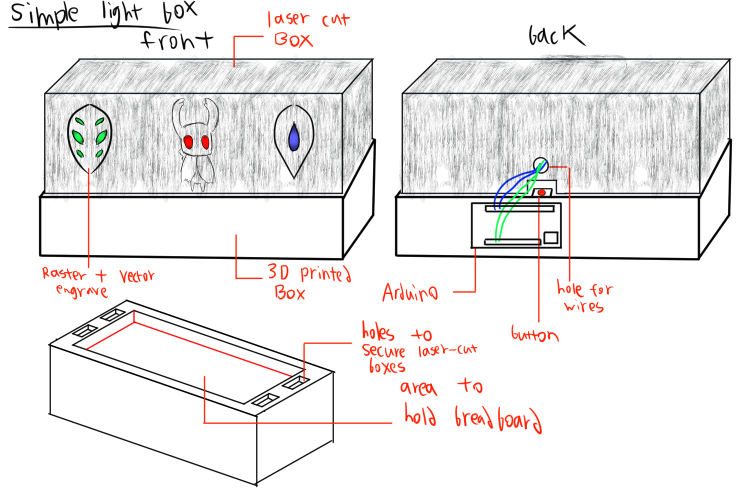 Simple light box
front
laser cut
BOX
back
Raster + vector
engrave
3D printed
Box
Arduino
button
hole for
wires
holes to
secure laser-cut
boxes
area to
hold breadboard